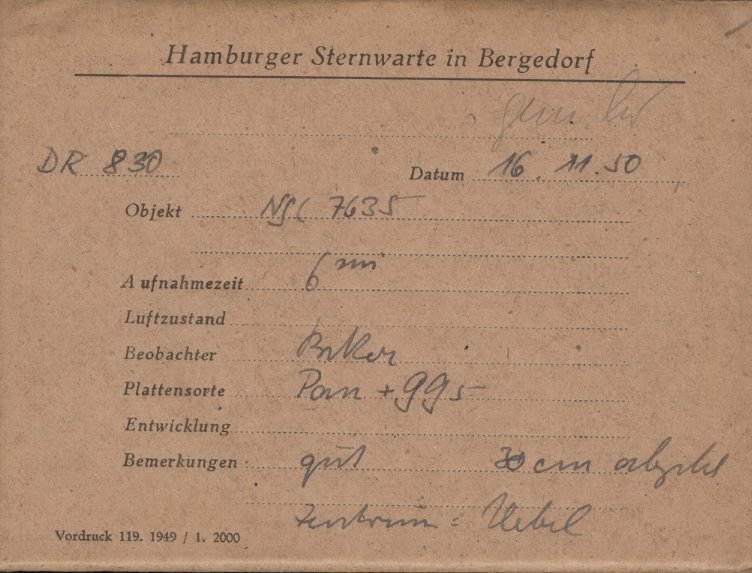 Hamburger Sternwarte in Bergedorf
DR 830 Datum 16. 11. 50
Objekt NGC 7635
Aufnahmezeit 6 min
Luftzustand
Beobachter
Plattensorte Pan + GG5
Entwicklung
Bemerkungen gut 30 cm
Zentrum = Nebel
Vordruck 119. 1949 / 1. 2000